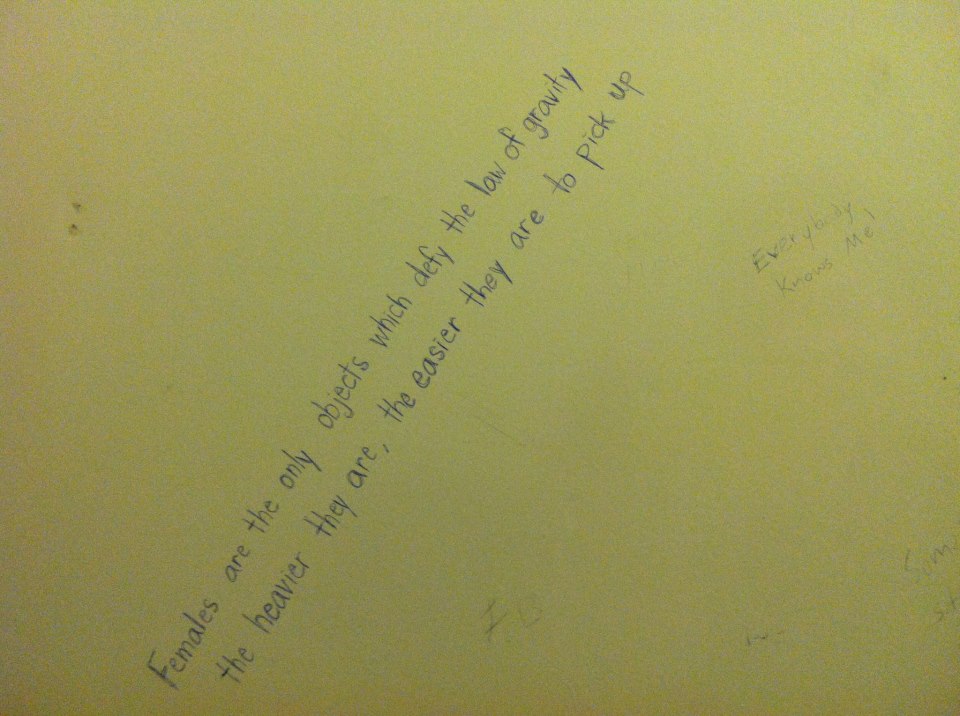 Females are the only objects which defy the law of gravity
the heavier they are, the easier they are to pick up
Everybody
Knows Me!